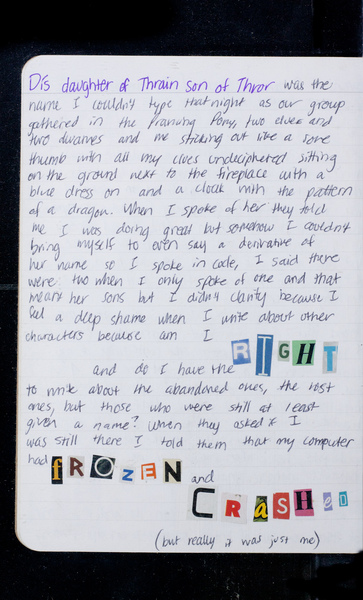 Dis daughter of Thrain son of Thror was the
name I couldn't type that night as our group
gathered in the Prancing Pony, two elves and
two dwarves and me sticking out like a sore
thumb with all my clues undeciphered sitting
on the ground next to the fireplace with a
blue dress on and a cloak with the pattern
of a dragon. When I spoke of her they told
me I was doing great but somehow I couldn't
bring myself to even say a derivative of
her name so I spoke in code, I said there
were two when I only spoke of one and that
meant her sons but I didn't clarify because I
feel a deep shame when I write about other
characters because am I
RIGHT
and do I have the
to write about the abandoned ones, the lost
ones, but those who were still at least
given a name? When they asked if I
was still there I told them that my computer
had FROZEN and
CRASHED
(but really it was just me)